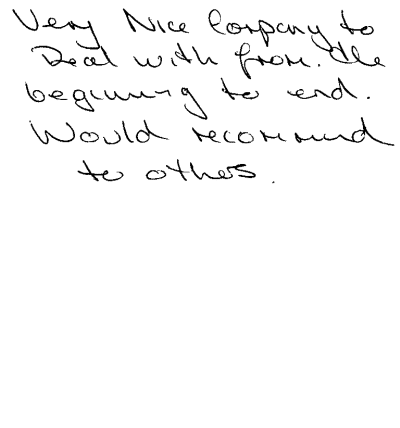 Very Nice Company to
Deal with from. the
beginning to end.
Would recommend
to others.